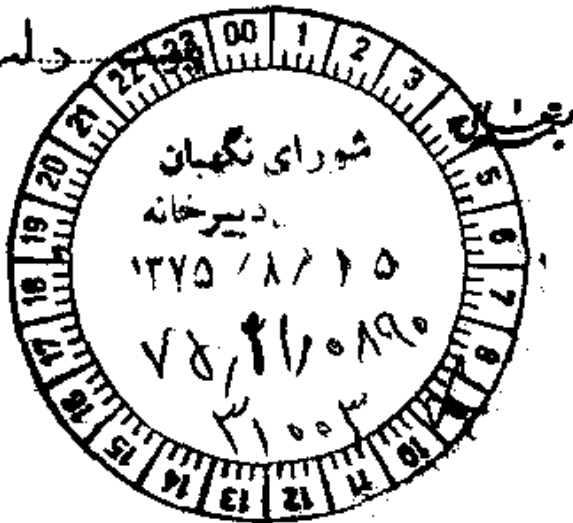 00 1 2 3 5 6 7 8 10 11 12 13 14 15 16 17 18 19 20 21 22 23
شورای نگهبان
دبیرخانه
۱۳۷۵/۸/۱۵
۷۵/۲۱/۰۸۹۰
۳۱۰۰۳